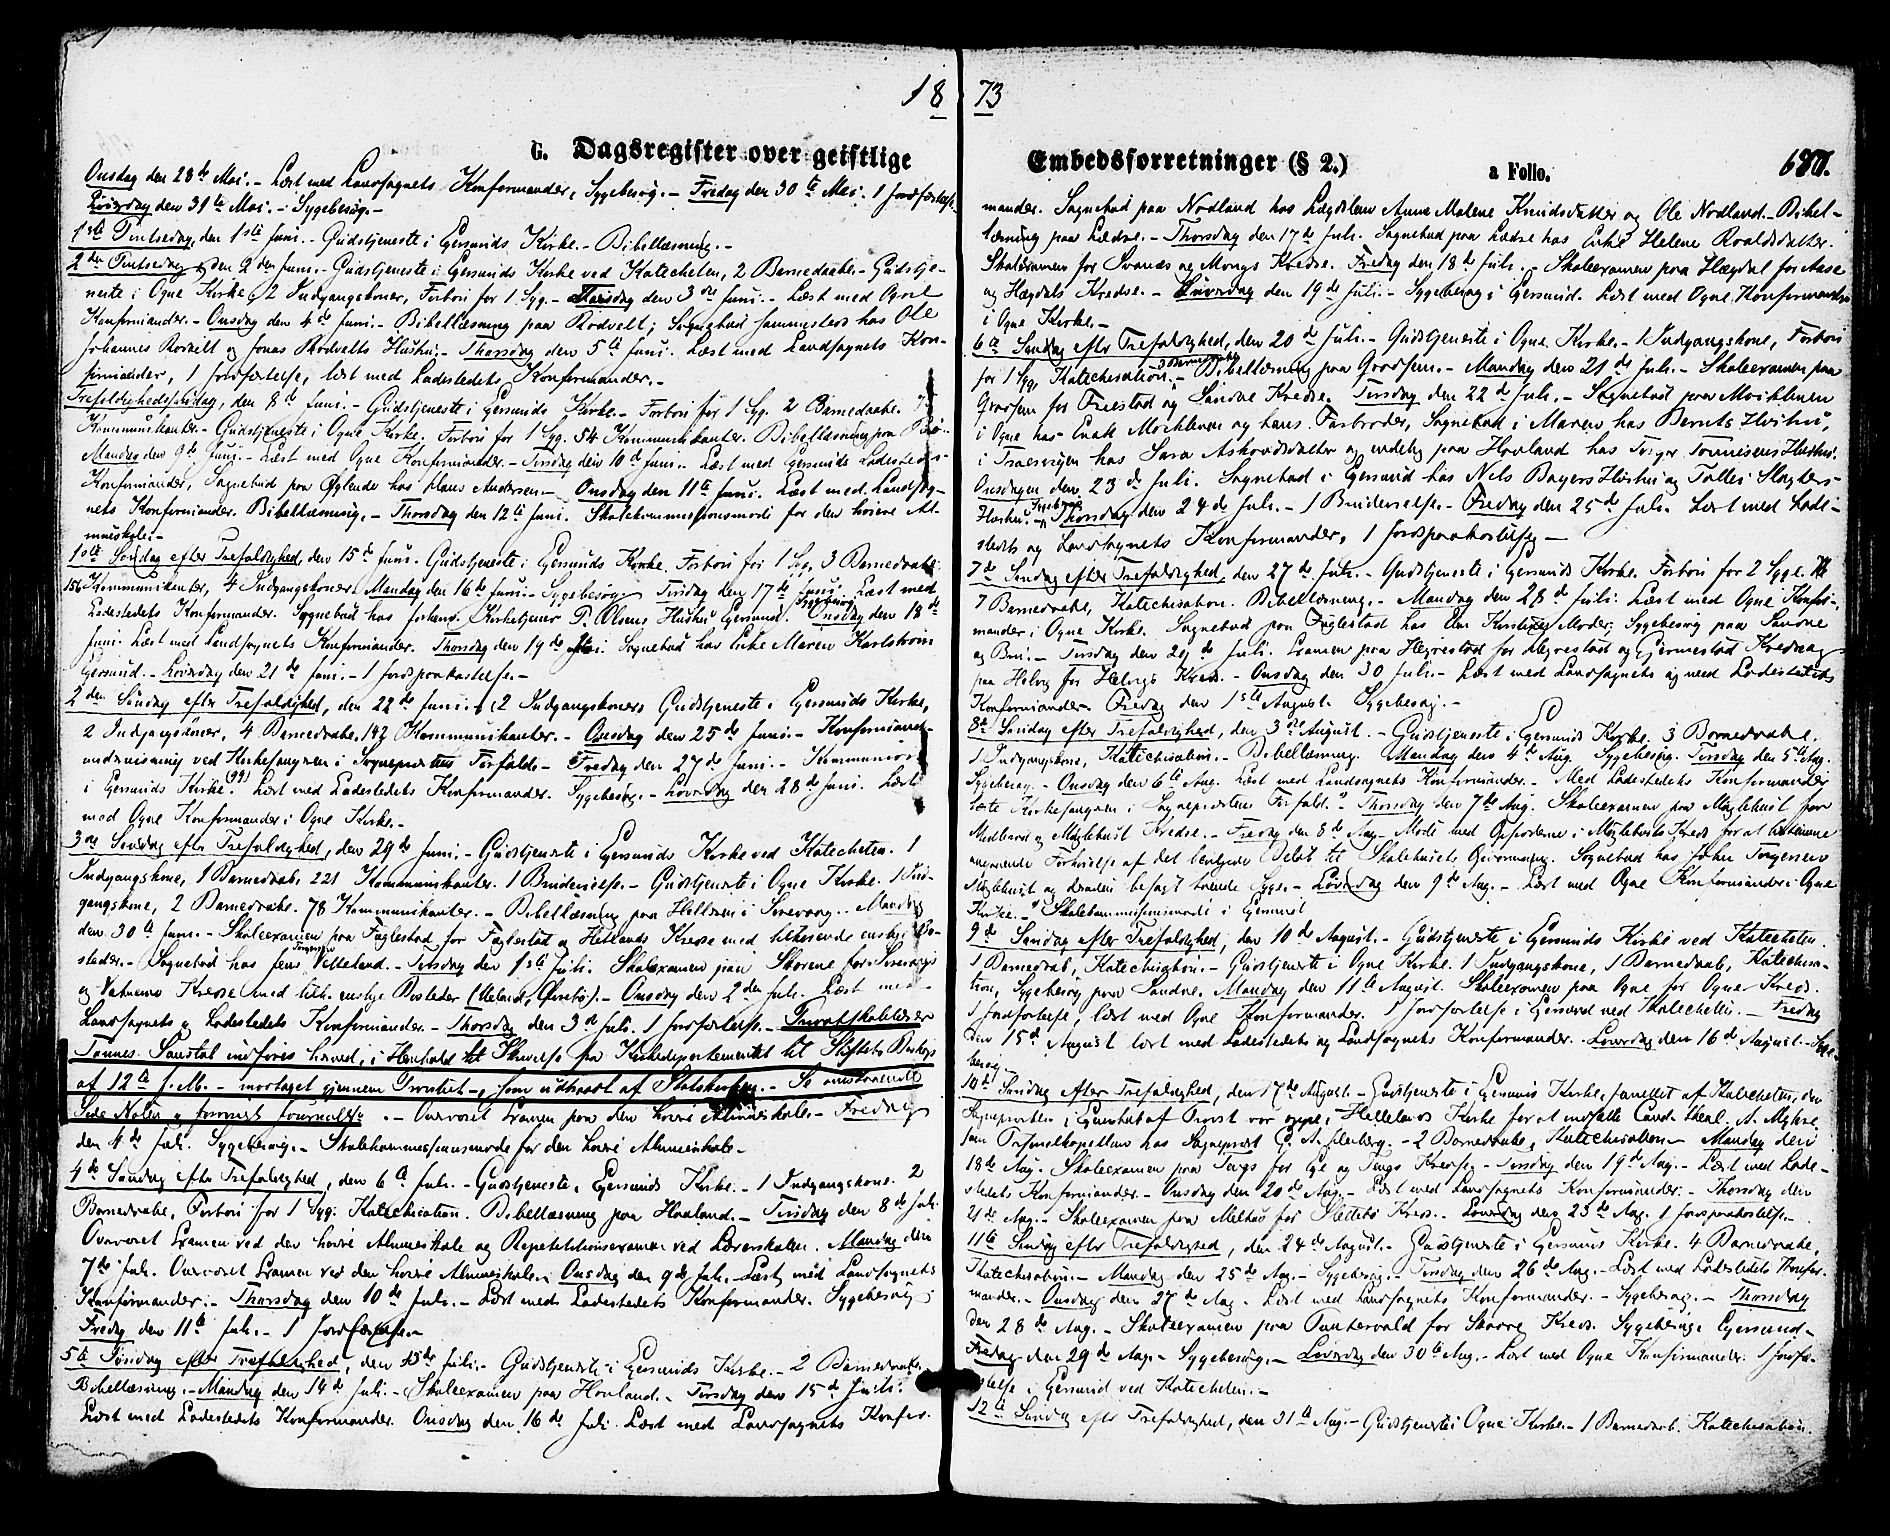 18 73
G. Dagsregister over geistlige
Onsdag den 28de Mai. - Læst med Landsognets Konfirmander, Sygebesøg. - Fredag den 30te Mai. 1 Jordfæstelse.
Løverdag den 31te Mai. - Sygebesøg. -
1ste Pintsedag, den 1ste Juni. - Gudstjeneste i Egersunds Kirke. - Bibellæsning. -
2den Pintsedag, den 2den Juni. - Gudstjeneste i Egersunds Kirke ved Katecheten, 2 Barnedaabe. - Gudstje-
neste i Ogne Kirke, 2 Indgangskoner, Forbøn for 1 Syg. - Tirsdag den 3die Juni. - Læst med Ogne
Konfirmander. - Onsdag den 4de Juni. - Bibellæsning paa Rodvelt; Sognebud sammesteds hos Ole
Johannes Rodvelt og Jonas Rodvelts Hustru. - Thorsdag den 5te Juni. Læst med Landsognets Kon-
firmander, 1 Jordfæstelse, læst med Ladestedets Konfirmander. -
Trefoldighedssøndag, den 8de Juni. - Gudstjeneste i Egersunds Kirke. - Forbøn for 1 Syg. 2 Barnedaabe.
Kommunikanter. - Gudstjeneste i Ogne Kirke. Forbøn for 1 Syg. 54 Kommunikanter. Bibellæsning paa
Mandag den 9de Juni. - Læst med Ogne Konfirmander. - Tirsdag den 10de Juni. - Læst med Egersunds Ladesteds-
Konfirmander, Sognebud paa Øglende hos Hans Andersen. - Onsdag den 11te Juni. Læst med Landsog-
nets Konfirmander. Bibellæsning. - Thorsdag den 12te Juni. Skolekommissionsmøde for den høiere Al-
mueskole. -
1ste Søndag efter Trefoldighed, den 15de Juni. Gudstjeneste i Egersunds Kirke. Forbøn for 1 Syg, 3 Barnedaabe
156 Kommunikanter, 4 Indgangskoner. Mandag den 16de Juni. - Sygebesøg. Tirsdag den 17de Juni. Læst med
Ladestedets Konfirmander. Sognebud hos forhenv. Kirketjener P. Olsens Hustru Egersund. Onsdag den 18de
Juni. Læst med Landsognets Konfirmander. Thorsdag den 19de Juni. Sognebud hos Enke Maren Karlstrøm
Egersund. - Løverdag den 21de Juni. - 1 Jordspaakastelse. -
2den Søndag efter Trefoldighed, den 22de Juni. - 2 Indgangskoner Gudstjeneste i Egersunds Kirke,
2 4 Barnedaabe, Kommunikanter. - Onsdag den 25de Juni. - Konfirmand-
undervisning ved Kirkesangeren i Sognepræstens Forfald. - Fredag den 27de Juni. - Kommunion
i Egersunds Kirke. (99) Læst med Ladestedets Konfirmander. Sygebesøg. - Løverdag den 28de Juni. Læst
med Ogne Konfirmander i Ogne Kirke. -
3die Søndag efter Trefoldighed, den 29de Juni. - Gudstjeneste i Egersunds Kirke ved Katecheten. 1
Indgangskone, 1 Barnedaab, 221 Kommunikanter. 1 Brudevielse. - Gudstjeneste i Ogne Kirke. 1 Ind-
gangskone, 2 Barnedaabe. 78 Kommunikanter. - Bibellæsning paa Helleren i Sirevaag. - Mandag
den 30te Juni. - Skoleexamen paa Fuglestad for Fuglestad og Hetlands Kredse med tilhørende enslige Bo-
steder. - Sognebud hos Jens Jørgensen Vetteland. - Tirsdag den 1ste Juli. Skoleexamen paa for Sirevaags
og Vatnemo Kredse med tilh. enslige Bosteder. - Onsdag den 2den Juli. Læst med
Landsognets og Ladestedets Konfirmander. - Thorsdag den 3de Juli. 1 Jordfæstelse. - Privatskolelærer
Tønnes indføres herved, i Henhold til Skrivelse fra Kirkedepartementet til Stiftets Biskop
af 12te f. M. - modtaget gjennem Provstiet -, som udtraadt af Statskirken. - Se
Side - Overværet Examen paa den høiere Almueskole. - Fredag
den 4de Juli. Sygebesøg. - Skolekommissionsmøde for den høiere Almueskole. -
4de Søndag efter Trefoldighed, den 6te Juli. - Gudstjeneste i Egersunds Kirke. - 1 Indgangskone. 2
Barnedaabe, Forbøn for 1 Syg. Katechisation. Bibellæsning paa Hovland. - Tirsdag den 8de Juli.
Overværet Examen ved den høiere Almueskole og Repetitionsexamen ved Lærerskolen. Mandag den
7de Juli. Overværet Examen ved den høiere Almueskole. Onsdag den 9de Juli. Læst med Landsognets
Konfirmander. - Thorsdag den 10de Juli. - Læst med Ladestedets Konfirmander. Sygebesøg.
Fredag den 11te Juli. - 1 Jordfæstelse. -
5te Søndag efter Trefoldighed, den 13de Juli. - Gudstjeneste i Egersunds Kirke. - 2 Barnedaabe.
Bibellæsning. - Mandag den 14de Juli. - Skoleexamen paa Hovland. - Tirsdag den 15de Juli.
Læst med Ladestedets Konfirmander. Onsdag den 16de Juli. Læst med Landsognets Konfir-
Embedsforretninger (§ 2.)
a Folio.
mander. Sognebud paa Nodland hos Lægdslem Anne Malene Knudsdatter og Ole Nodland. - Bibel-
læsning paa Lædre. - Thorsdag den 17de Juli. Sognebud paa Lædre hos Enke Helene Roaldsdatter.
Skoleexamen for Svanæs og Mongs Kredse. Fredag den 18de Juli. - Skoleexamen paa Hægdal for Aase
og Hægdals Kredse. - Løverdag den 19de Juli. - Sygebesøg i Egersund. Læst med Ogne Konfirmander
i Ogne Kirke. -
6te Søndag efter Trefoldighed, den 20de Juli. - Gudstjeneste i Ogne Kirke. - 1 Indgangskone, Forbøn
for 1 Syg, Katechisation. 3 Barnedaabe - Bibellæsning paa Grøsfjem. - Mandag den 21de Juli. - Skoleexamen paa
for Friestad og Sandve Kredse. Tirsdag den 22de Juli. - Sognebud paa
i Ogne hos og hans Farbroder, Sognebud i Maren hos Bernts Hustru,
i hos Sara Askovdsdatter og endelig paa Hovland hos Torger Tønnesens Hustru.
Onsdagen den 23de Juli. Sognebud i Egersund hos Nels Bøyers Hustru og Tolles Slagters
Hustru. Sygebesøg - Thorsdag den 24de Juli. - 1 Brudevielse. - Fredag den 25de Juli. Læst med Lade-
stedets og Landsognets Konfirmander, 1 Jordspaakastelse. -
7de Søndag efter Trefoldighed, den 27de Juli. - Gudstjeneste i Egersunds Kirke. Forbøn for 2 Syge.
7 Barnedaabe, Katechisation. Bibellæsning. - Mandag den 28de Juli. Læst med Ogne Konfir-
mander i Ogne Kirke. Sognebud paa Fuglestad hos Moder. Sygebesøg paa
og Bru. - Tirsdag den 29de Juli. Examen paa Hegrestad for Hegrestad og Gjermestad Kredse og
paa Helvig for Helvigs Kreds. - Onsdag den 30 Juli. - Læst med Landsognets og med Ladestedets
Konfirmander. Fredag den 1ste August. Sygebesøg. -
8de Søndag efter Trefoldighed, den 3die August. - Gudstjeneste i Egersunds Kirke. 3 Barnedaabe.
1 Indgangskone, Katechisation. - Bibellæsning. Mandag den 4de Aug. Sygebesøg. Tirsdag den 5te Aug.
Sygebesøg. - Onsdag den 6te Aug. Læst med Landsognets Konfirmander. - Med Ladestedets Konfirmander
læste Kirkesangeren i Sognepræstens Forfald. - Thorsdag den 7de Aug. Skoleexamen paa Møglebust for
og Møglebust Kredse. - Fredag den 8de Aug. - Møde med Opsidderne i Møglebusts Kreds for at bestemme
angaaende Forhøielse af det Beløb til Skolehusets Sognebud hos John Torgersen
Møglebust og desuden besøgt trende Syge. - Løverdag den 9de Aug. - Læst med Ogne Konfirmander i Ogne
Kirke. - Skolekommissionsmøde i Egersund
9de Søndag efter Trefoldighed, den 10de August. - Gudstjeneste i Egersunds Kirke ved Katecheten.
1 Barnedaab, Katechisation. - Gudstjeneste i Ogne Kirke. 1 Indgangskone, 1 Barnedaab, Katechisa-
tion, Sygebesøg paa Sandve. Mandag den 11te August. Skoleexamen paa Ogne for Ogne Kreds.
1 Jordfæstelse, læst med Ogne Konfirmander. 1 Jordfæstelse i Egersund ved Katecheten. - Fredag
den 15de August læst med Ladestedets og Landsognets Konfirmander. Løverdag den 16de August. - Syge-
besøg. -
10de Søndag efter Trefoldighed, den 17de August. - Gudstjeneste i Egersunds Kirke, forrettet af Katecheten, da
Sognepræsten i Egenskab af Provst var oppe i Hellelands Kirke for at indsætte Cand. theol. A. Myhre
som Personelkapellan hos Sognepræst - 2 Barnedaabe, Katechisation. - Mandag den
18de Aug. Skoleexamen paa Tengs for Ege og Tengs Kredse. - Tirsdag den 19de Aug. - Læst med Lade-
stedets Konfirmander. - Onsdag den 20de Aug. - Læst med Landsognets Konfirmander. - Thorsdag den
21de Aug. - Skoleexamen paa Melhus for Slettebø Kreds. Løverdag den 23de Aug. 1 Jordspaakastelse. -
11te Søndag efter Trefoldighed, den 24de August. - Gudstjeneste i Egersunds Kirke. 4 Barnedaabe,
Katechisation. - Mandag den 25de Aug. - Sygebesøg. - Tirsdag den 26de Aug. - Læst med Ladestedets Konfir-
mander. - Onsdag den 27de Aug. Læst med Landsognets Konfirmander. - Sygebesøg. - Thorsdag
den 28de Aug. - Skoleexamen paa Puntervold for Skaare Kreds. Sygebesøg i Egersund -
Fredag den 29de Aug. - Sygebesøg. - Løverdag den 30te Aug. - Læst med Ogne Konfirmander. 1 Jordfæ-
stelse i Egersund ved Katecheten. -
12te Søndag efter Trefoldighed, den 31te Aug. - Gudstjeneste i Ogne Kirke. - 1 Barnedaab. Katechisation.